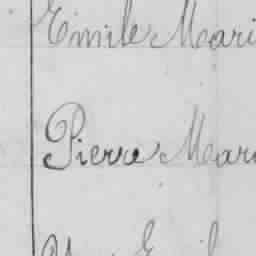 Emile Mari
Pierre Mar